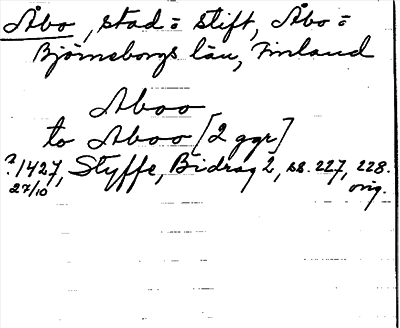 Åbo, stad = stift, Åbo =
Björneborgs län, Finland
Aboo
to Aboo [2 ggr]
? 1427, Styffe, Bidrag 2, ss. 227, 228.
27/10 orig.